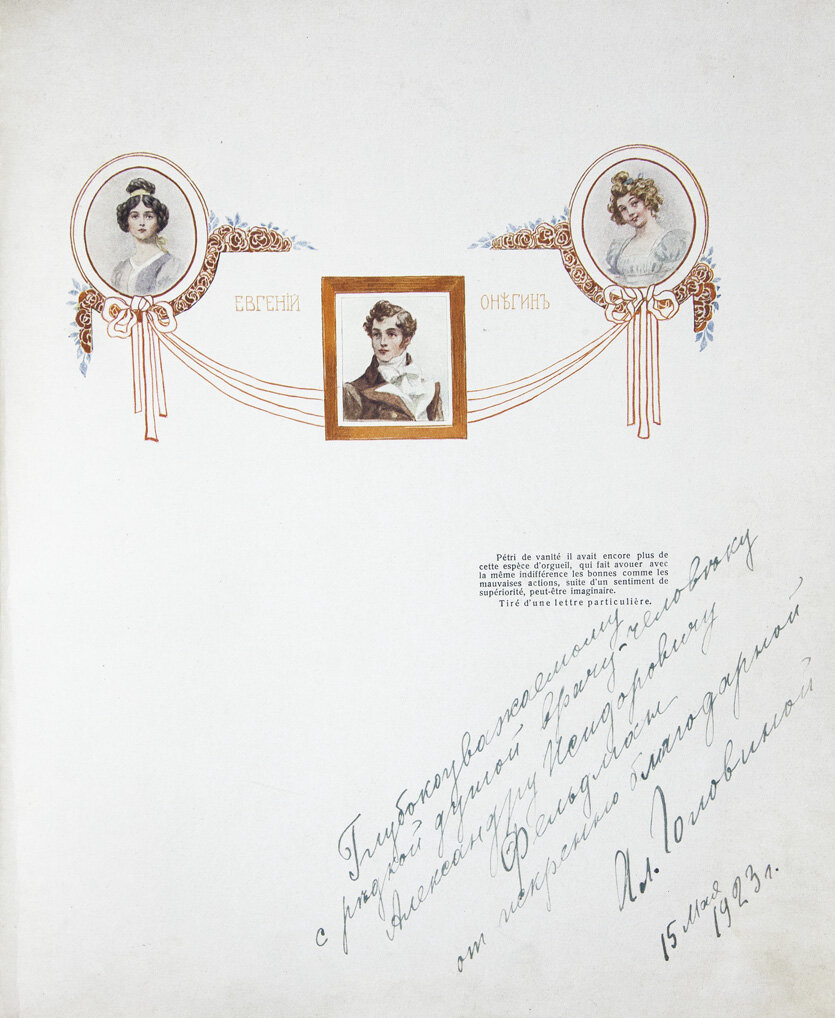 ЕВГЕНІЙ ОНѢГИНЪ
Pétri de vanité il avait encore plus de
cette espèce d'orgueil, qui fait avouer avec
la même indifférence les bonnes comme les
mauvaises actions, suite d'un sentiment de
supériorité, peut-être imaginaire.
Tiré d'une lettre particulière.
Глубокоуважаемому
с рѣдкой душой врачу-человѣку
Александру Исидоровичу
Фельдман
от искренно благодарной
Ал. Головиной
15 Мая
1923 г.